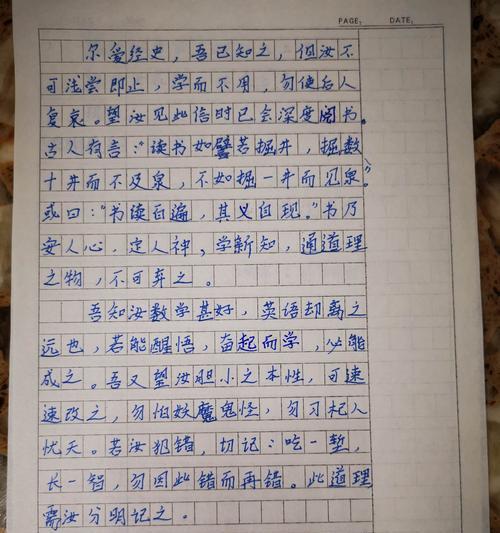 PAGE: DATE:
尔爱经史，吾已知之，但汝不
可浅尝即止，学而不用，勿使后人
复哀。望汝见此信时已会深度阅书。
古人有言：“读书如譬若掘井，掘数
十井而不及泉，不如掘一井而见泉。”
或曰：“书读百遍，其义自现。”书乃
安人心，定人神，学新知，通道理
之物，不可弃之。
吾知汝数学甚好，英语却离之
远也，若能醒悟，奋起而学，必能
成之。吾又望汝胆小之本性，可速
速改之，勿怕妖魔鬼怪，勿习杞人
忧天。若汝犯错，切记：吃一堑，
长一智，勿因此错而再错。此道理
需汝分明记之。